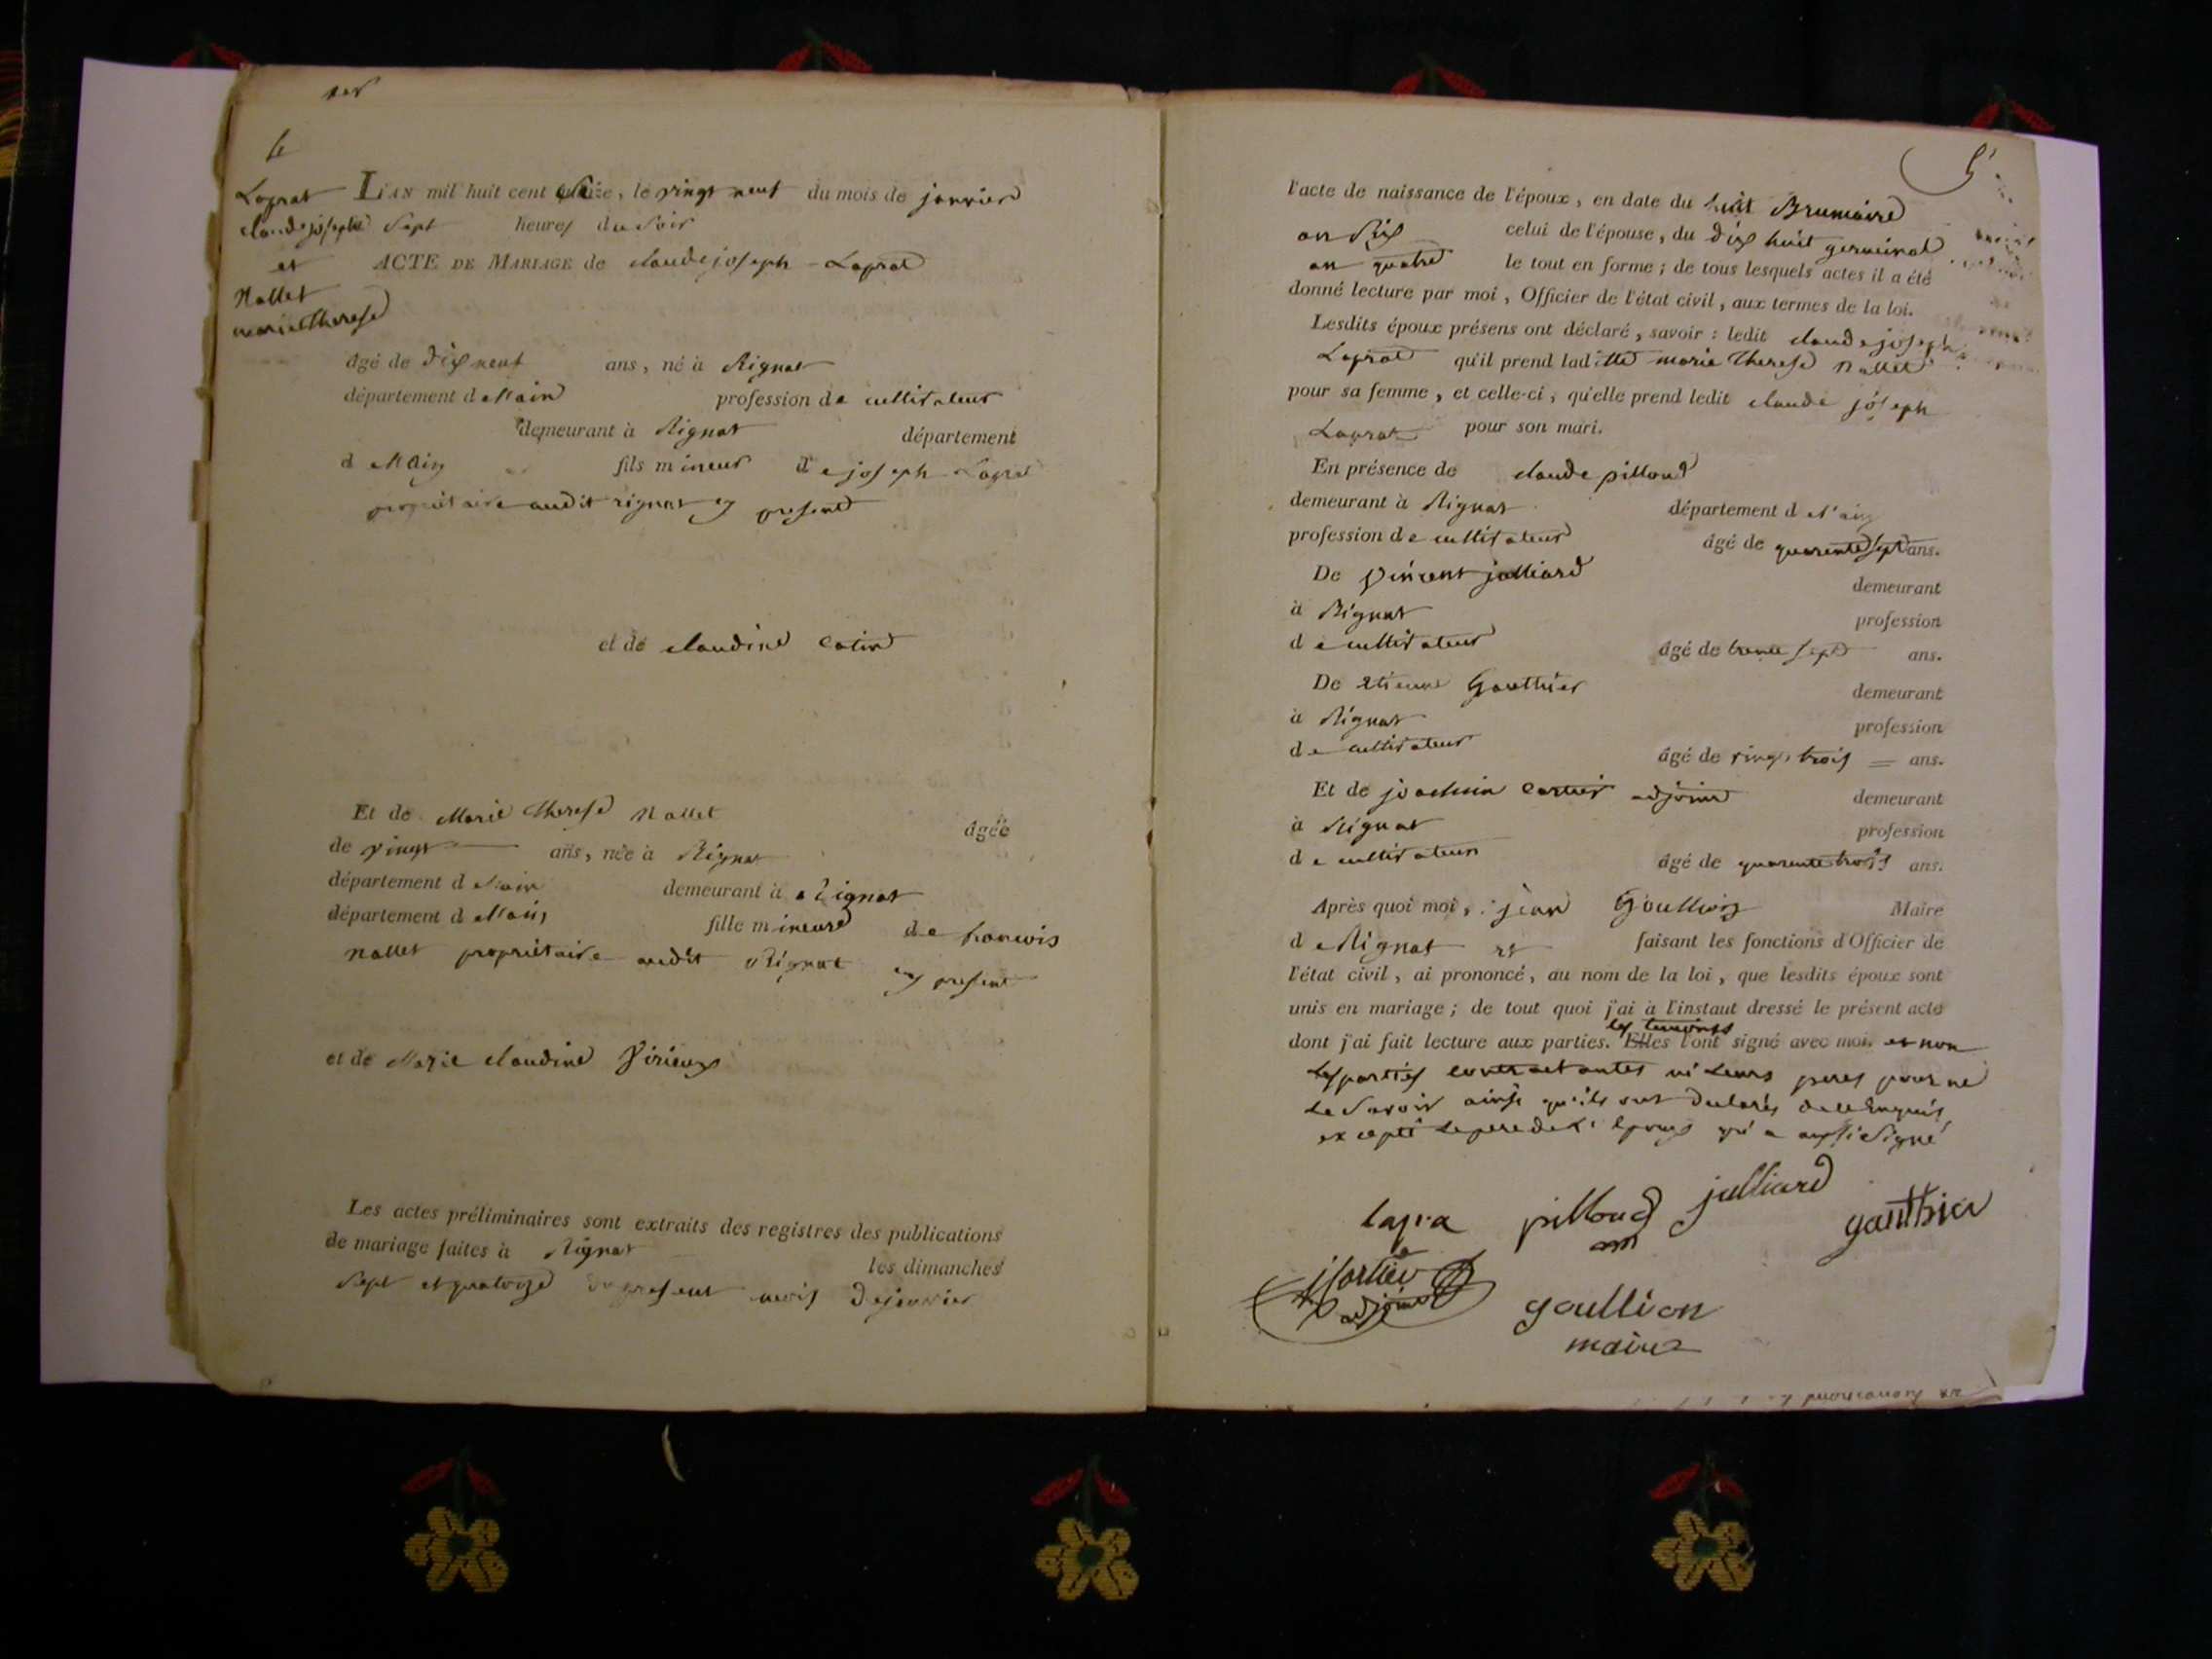 Laprat
claude joseph
et
Nallet
marie therese
L'AN mil huit cent seize, le vingt neuf du mois de janvier
Sept heures du Soir
ACTE DE MARIAGE de claude joseph Laprat
âgé de dix neuf ans, né à Rignat
département de l'ain profession de cultivateur
demeurant à Rignat département
de l'Ain fils mineur de joseph Laprat
propriétaire audit rignat cy present
et de claudine Catin
Et de Marie therese Nallet âgée
de vingt ans, née à Rignat
département de l'ain demeurant à Rignat
département de l'ain fille mineure de francois
nallet propriétaire audit Rignat cy present
et de Marie claudine Virieux
Les actes préliminaires sont extraits des registres des publications
de mariage faites à Rignat les dimanches
Sept et quatorze du present mois de janvier
l'acte de naissance de l'époux, en date du huit Brumaire
an Six celui de l'épouse, du dix huit germinal
an quatre le tout en forme ; de tous lesquels actes il a été
donné lecture par moi, Officier de l'état civil, aux termes de la loi.
Lesdits époux présens ont déclaré, savoir : ledit claude joseph
Laprat qu'il prend laditte marie therese nallet
pour sa femme, et celle-ci, qu'elle prend ledit claude joseph
Laprat pour son mari.
En présence de claude pilloud
demeurant à Rignat département de l'ain
profession de cultivateur âgé de quarente sept ans.
De Vincent julliard demeurant
à Rignat profession
de cultivateur âgé de trente sept ans.
De etienne Gauthier demeurant
à Rignat profession
de cultivateur âgé de vingt trois ans.
Et de joachim Cartier adjoint demeurant
à Rignat profession
de cultivateur âgé de quarente trois ans.
Après quoi moi, jean Goullion Maire
de Rignat faisant les fonctions d'Officier de
l'état civil, ai prononcé, au nom de la loi, que lesdits époux sont
unis en mariage ; de tout quoi j'ai à l'instaut dressé le présent acte
les temoins
dont j'ai fait lecture aux parties. Elles l'ont signé avec moi. et non
les parties contractantes ni Leurs peres pour ne
Le Savoir ainsi qu'ils ont declarés de ce Enquis,
excepté Le pere de l'epoux qui a aussi Signé
lapra pilloud julliard gauthier
j Cartier
adjoint
goullion
maire